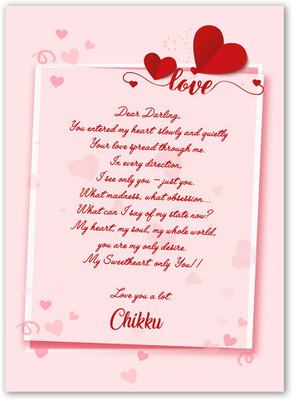 love
Dear Darling,
You entered my heart slowly and quietly
Your love spread through me.
In every direction,
I see only you – just you.
What madness, what obsession...
What can I say of my state now?
My heart, my soul, my whole world,
you are my only desire.
My Sweetheart only You!!
Love you a lot.
Chikku